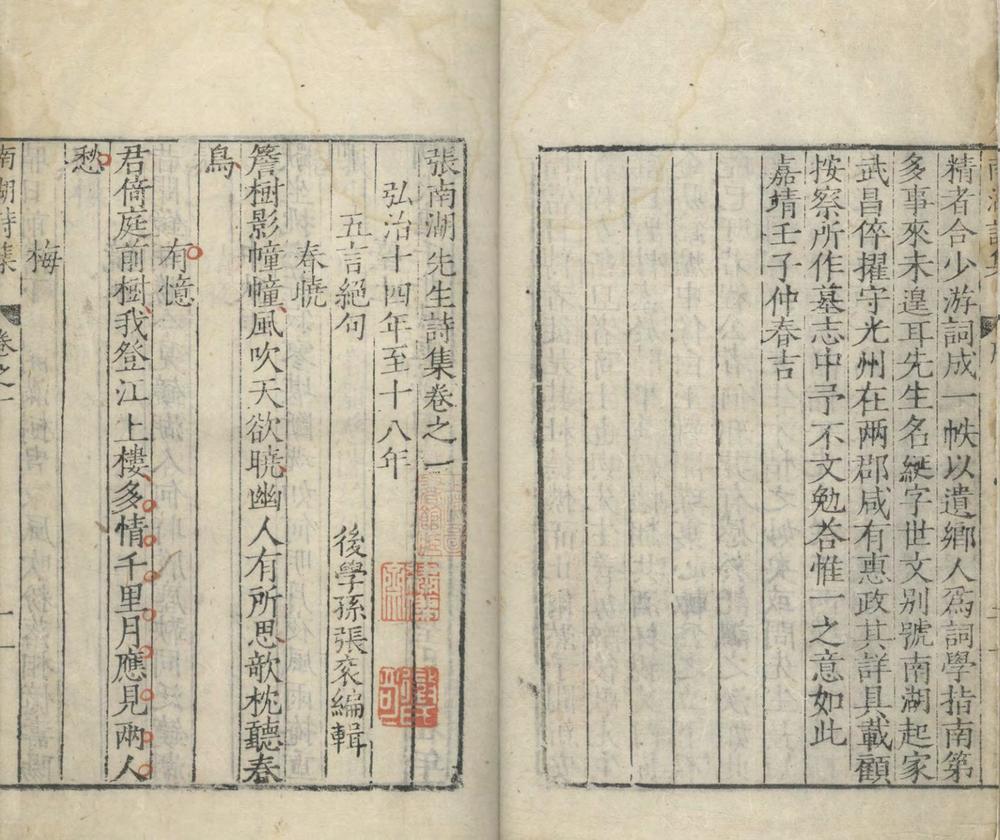 精者合少游詞成一帙以遺鄉人爲詞學指南第
多事來未遑耳先生名綖字世文别號南湖起家
武昌倅擢守光州在兩郡咸有惠政其詳具載顧
按察所作墓志中予不文勉荅惟一之意如此
嘉靖壬子仲春吉
張南湖先生詩集卷之一
弘治十四年至十八年
五言絕句
後學孫張衮編輯
春曉
簷樹影幢幢風吹天欲曉幽人有所思欹枕聽春
鳥
有憶
君倚庭前樹我登江上樓多情千里月應見兩人
愁
梅
南湖詩集
卷之一
一